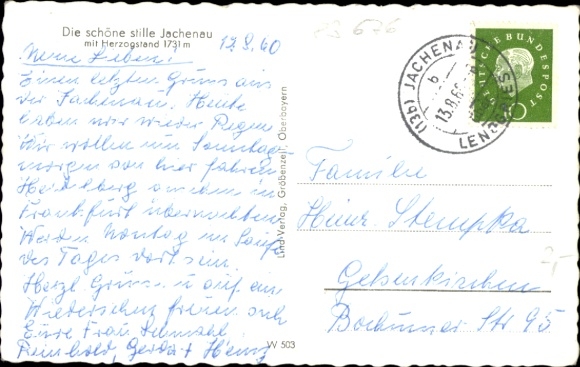 Die schöne stille Jachenau
mit Herzogstand 1731 m
12.8.60
Meine Lieben!
Einen letzten Gruss aus
der Jachenau. Heute
haben wir wieder Regen
Wir wollen am Sonntag
morgen von hier fahren
Heidelberg oder in
Frankfurt übernachten
Werden Montag im Lauf
des Tages dort sein
Herzl. Grüsse u auf ein
Wiedersehen freuen sich
Eure Frau
Reinhold, Gerda + Heinz
Lind-Verlag, Gröbenzell, Oberbayern
W 503
(13b) JACHENAU
b
13.8.60
LENGGRIES
DEUTSCHE BUNDESPOST
10
Familie
Heinz Stempka
Gelsenkirchen
Bochumer Str 95